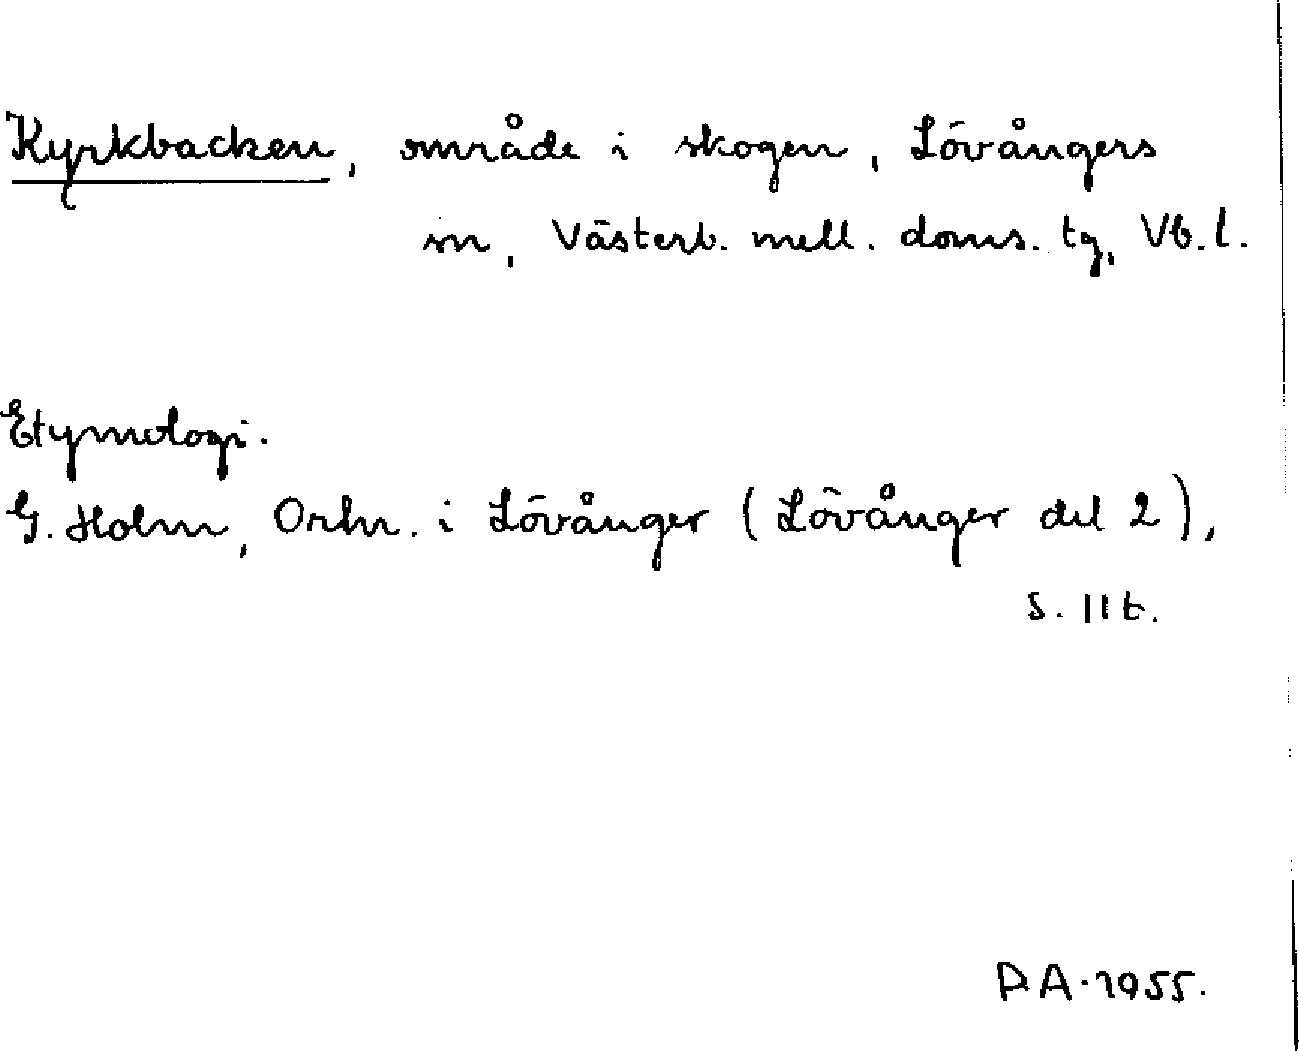 Kyrkbacken, område i skogen, Lövångers
sn, Västerb. mell. doms. tg, Vb. l.
Etymologi.
G. Holm, Ortn. i Lövånger (Lövånger del 2),
s. 11 f.
P.A. 1955.